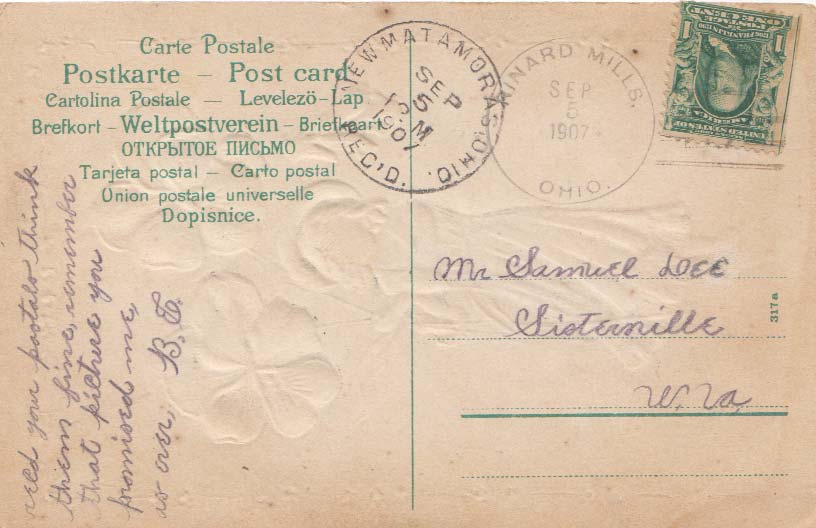 Carte Postale
Postkarte – Post card
Cartolina Postale — Levelezö-Lap
Brefkort – Weltpostverein – Briefkaart
ОТКРЫТОЕ ПИСЬМО
Tarjeta postal – Carto postal
Union postale universelle
Dopisnice.
NEW MATAMORAS, OHIO.
SEP
5
M
1907
REC'D.
RINARD MILLS,
SEP
5
1907
OHIO.
ONE CENT
1
1
UNITED STATES OF AMERICA
Mr Samuel Dee
Sistersville
W. Va,
317a
recd your postals think
them fine, remember
that picture you
promised me,
as ever, B. T.